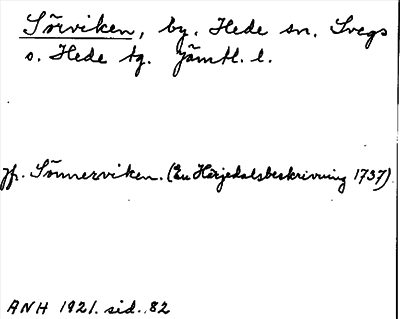 Sörviken, by. Hede sn. Svegs
o. Hede tg. Jämtl. l.
jfr. Sönnerviken. (En Härjedalsbeskrivning 1737)
ANH 1921. sid. 82